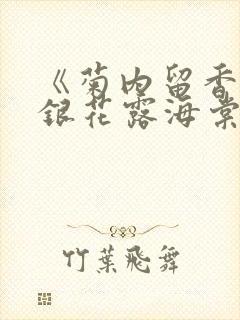 《菊内留香
銀花露海棠
竹葉飛舞